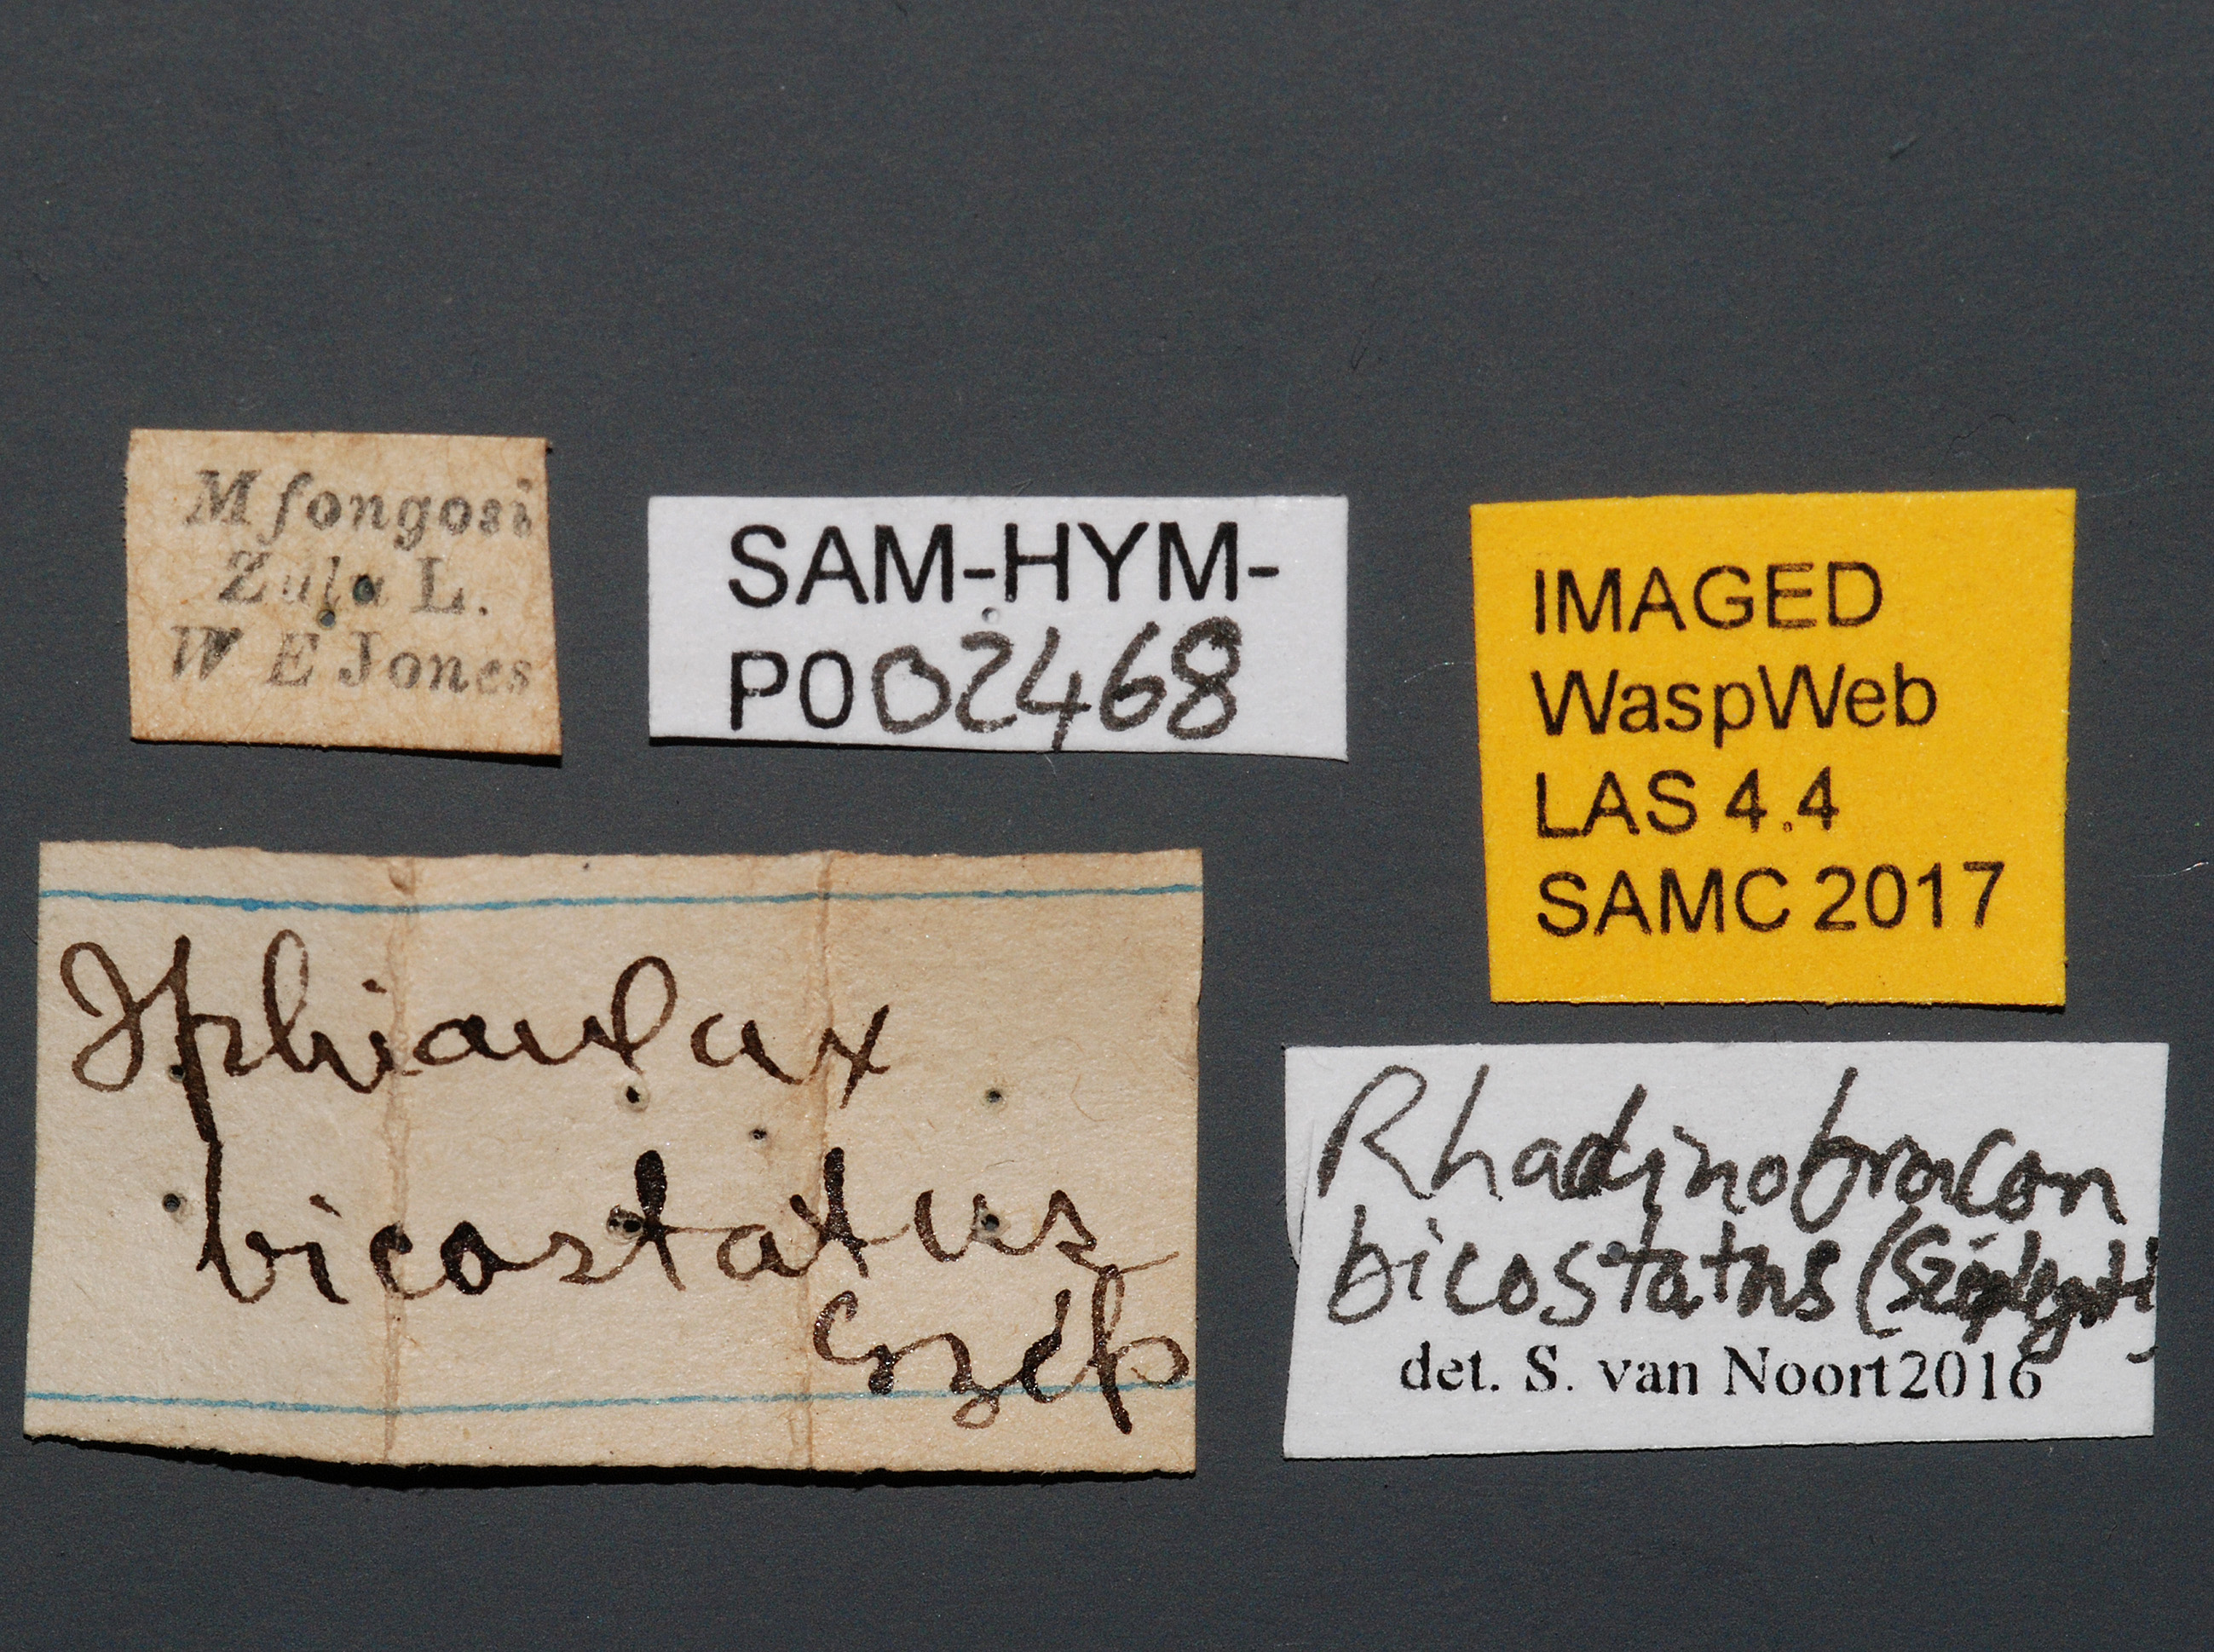 Mfongosi
Zulu L.
W E Jones
SAM-HYM-
P002468
IMAGED
WaspWeb
LAS 4.4
SAMC 2017
Iphiaulax
bicostatus
Szép
Rhadinobracon
bicostatus
det. S. van Noort 2016